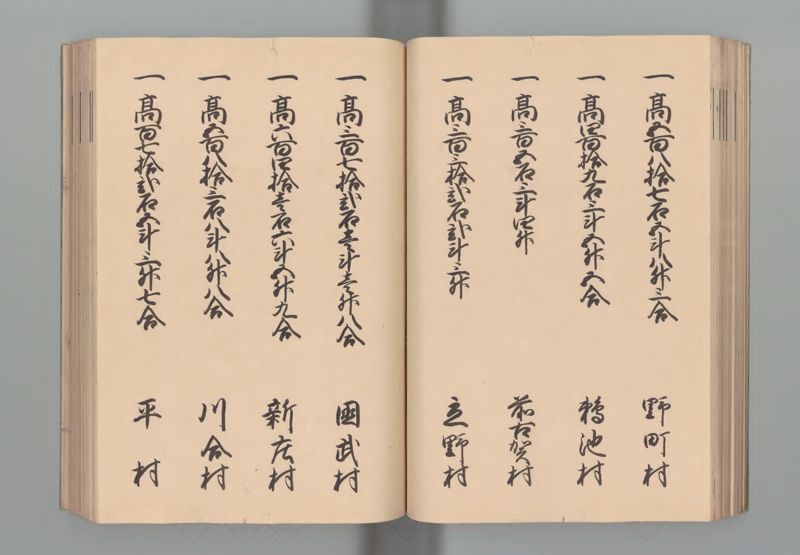 一高五百八拾七石五斗八升三合 野町村
一高四百拾九石三斗五升五合 鶴池村
一高三百五石三斗四升 前古賀村
一高三百六拾弐石弐斗三升 立野村
一高三百七拾弐石壱斗壱升八合 国武村
一高六百四拾壱石六斗五升九合 新庄村
一高五百八拾三石八斗八升八合 川合村
一高百七拾弐石五斗三升七合 平村